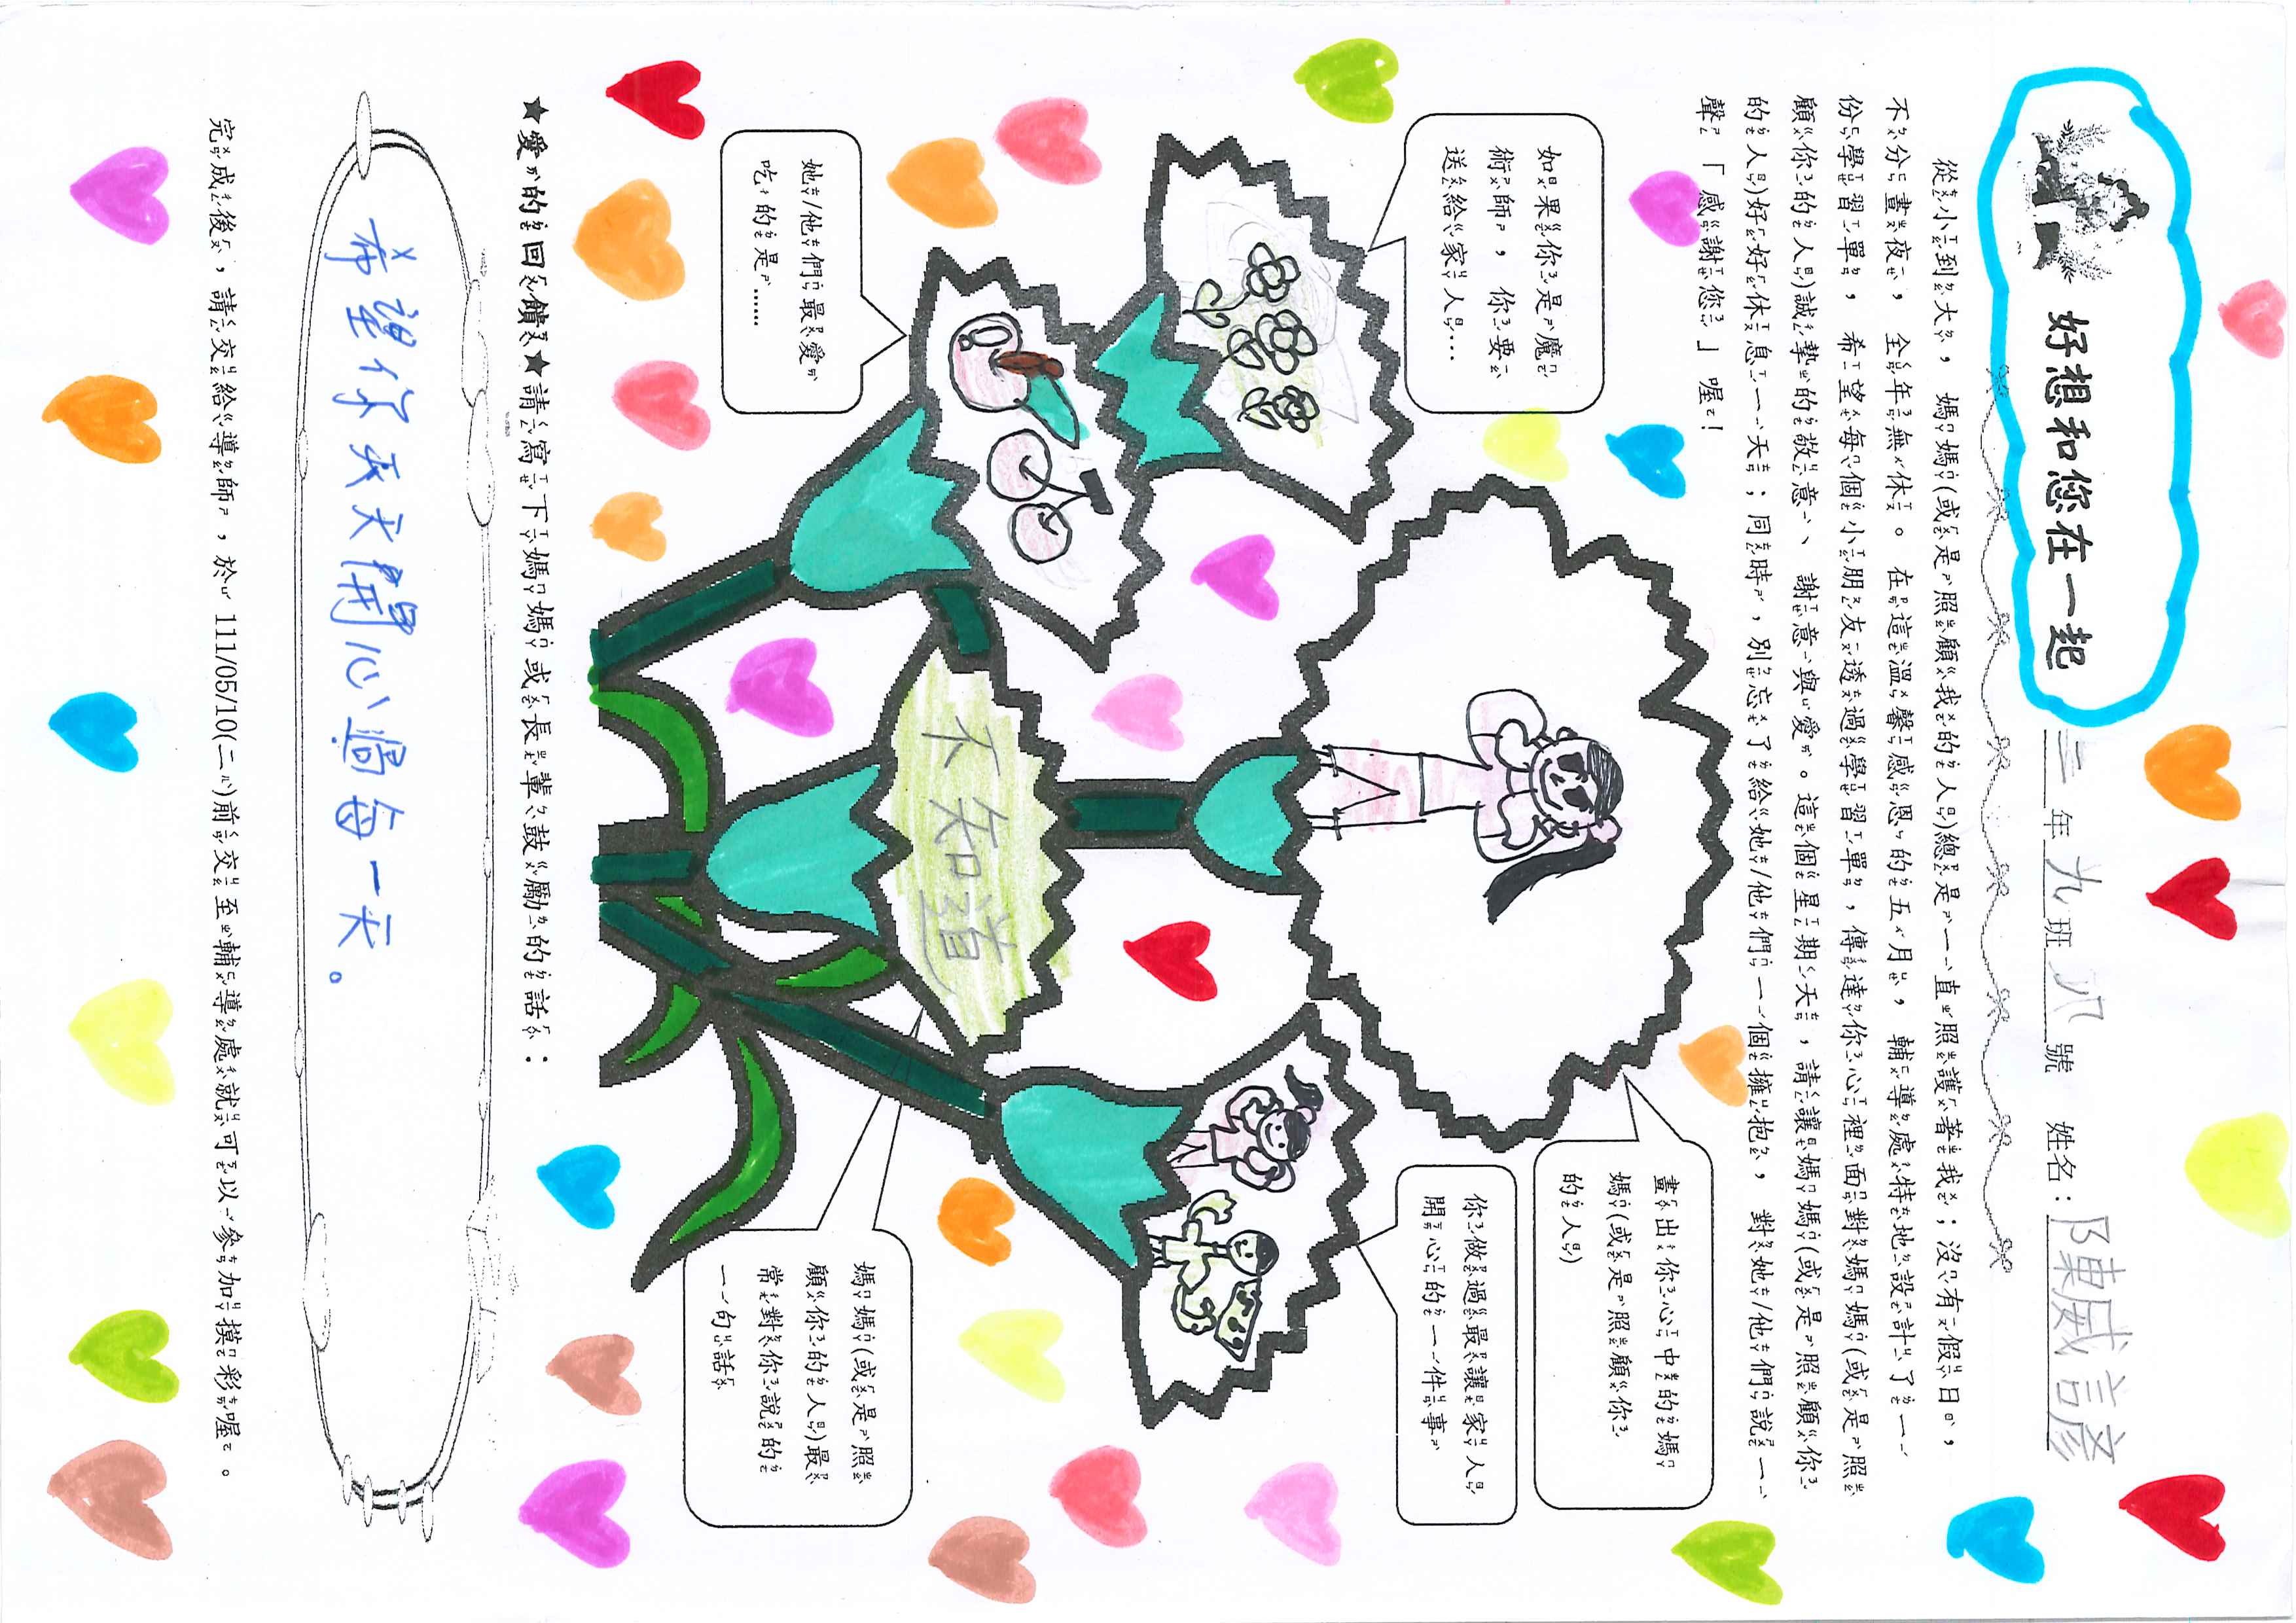 好想和您在一起
二年九班八號 姓名：陳威諺
從小到大，媽媽(或是照顧我的人)總是一直照護著我；沒有假日，
不分晝夜，全年無休。在這溫馨感恩的五月，輔導處特地設計了一
份學習單，希望每個小朋友透過學習單，傳達你心裡面對媽媽(或是照
顧你的人)誠摯的敬意、謝意與愛。這個星期天，請讓媽媽(或是照顧你
的人)好好休息一天；同時，別忘了給她/他們一個擁抱，對她/他們說一
聲「感謝您」喔！
如果你是魔
術師，你要
送給家人…
畫出你心中的媽
媽(或是照顧你
的人)
你做過最讓家人
開心的一件事
她/他們最愛
吃的是……
不知道
媽媽(或是照
顧你的人)最
常對你說的
一句話
★愛的回饋★請寫下媽媽或長輩鼓勵的話：
希望你天天開心過每一天。
完成後，請交給導師，於111/05/10(二)前交至輔導處就可以參加摸彩喔。